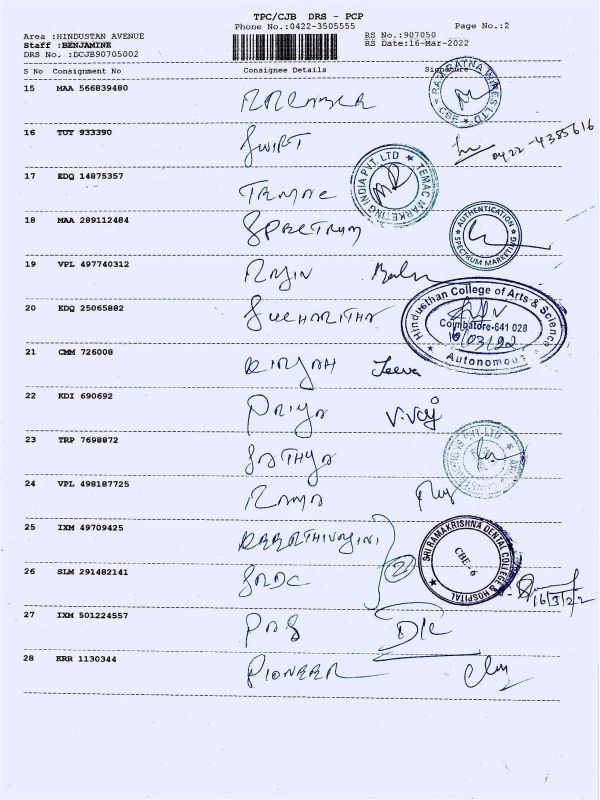 TPC/CJB DRS - PCP
Phone No.:0422-3505555
Page No.:2
Area :HINDUSTAN AVENUE
RS No.:907050
Staff :BENJAMINE
RS Date:16-Mar-2022
DRS No. :DCJB90705002
S No Consignment No Consignee Details Signature
15 MAA 566839480
RAVI RATNA WIRES LTD CBE
16 TUT 933390 SWIFT
0422-4385616
17 EDQ 14875357
TEMAC MARKETING INDIA PVT. LTD
18 MAA 289112484 SPECTRUM
AUTHENTICATION SPECTRUM MARKETING
19 VPL 497740312
20 EDQ 25065882 SUCHARITHA
Hindusthan College of Arts & Science
Coimbatore-641 028
16/03/22
Autonomous
21 CMM 726008 Jeeva
22 KDI 690692 PRIYA
23 TRP 7698872 SATHYA
24 VPL 498187725 RAMYA
25 IXM 49709425
SRI RAMAKRISHNA DENTAL COLLEGE & HOSPITAL
CBE-6
26 SLM 291482141 SRDC 2
16/3/22
27 IXM 501224557
28 KRR 1130344 PIONEER